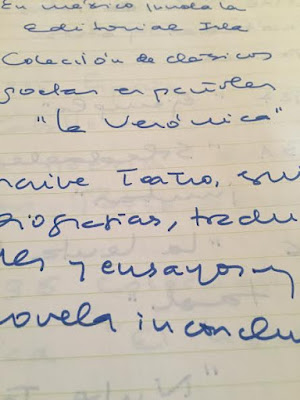 En méxico funda la
editorial Isla
Colección de clásicos
poetas españoles
"la Verónica"
cribe Teatro, gui
biografías, tradu
nes y ensayos y
novela inconclu